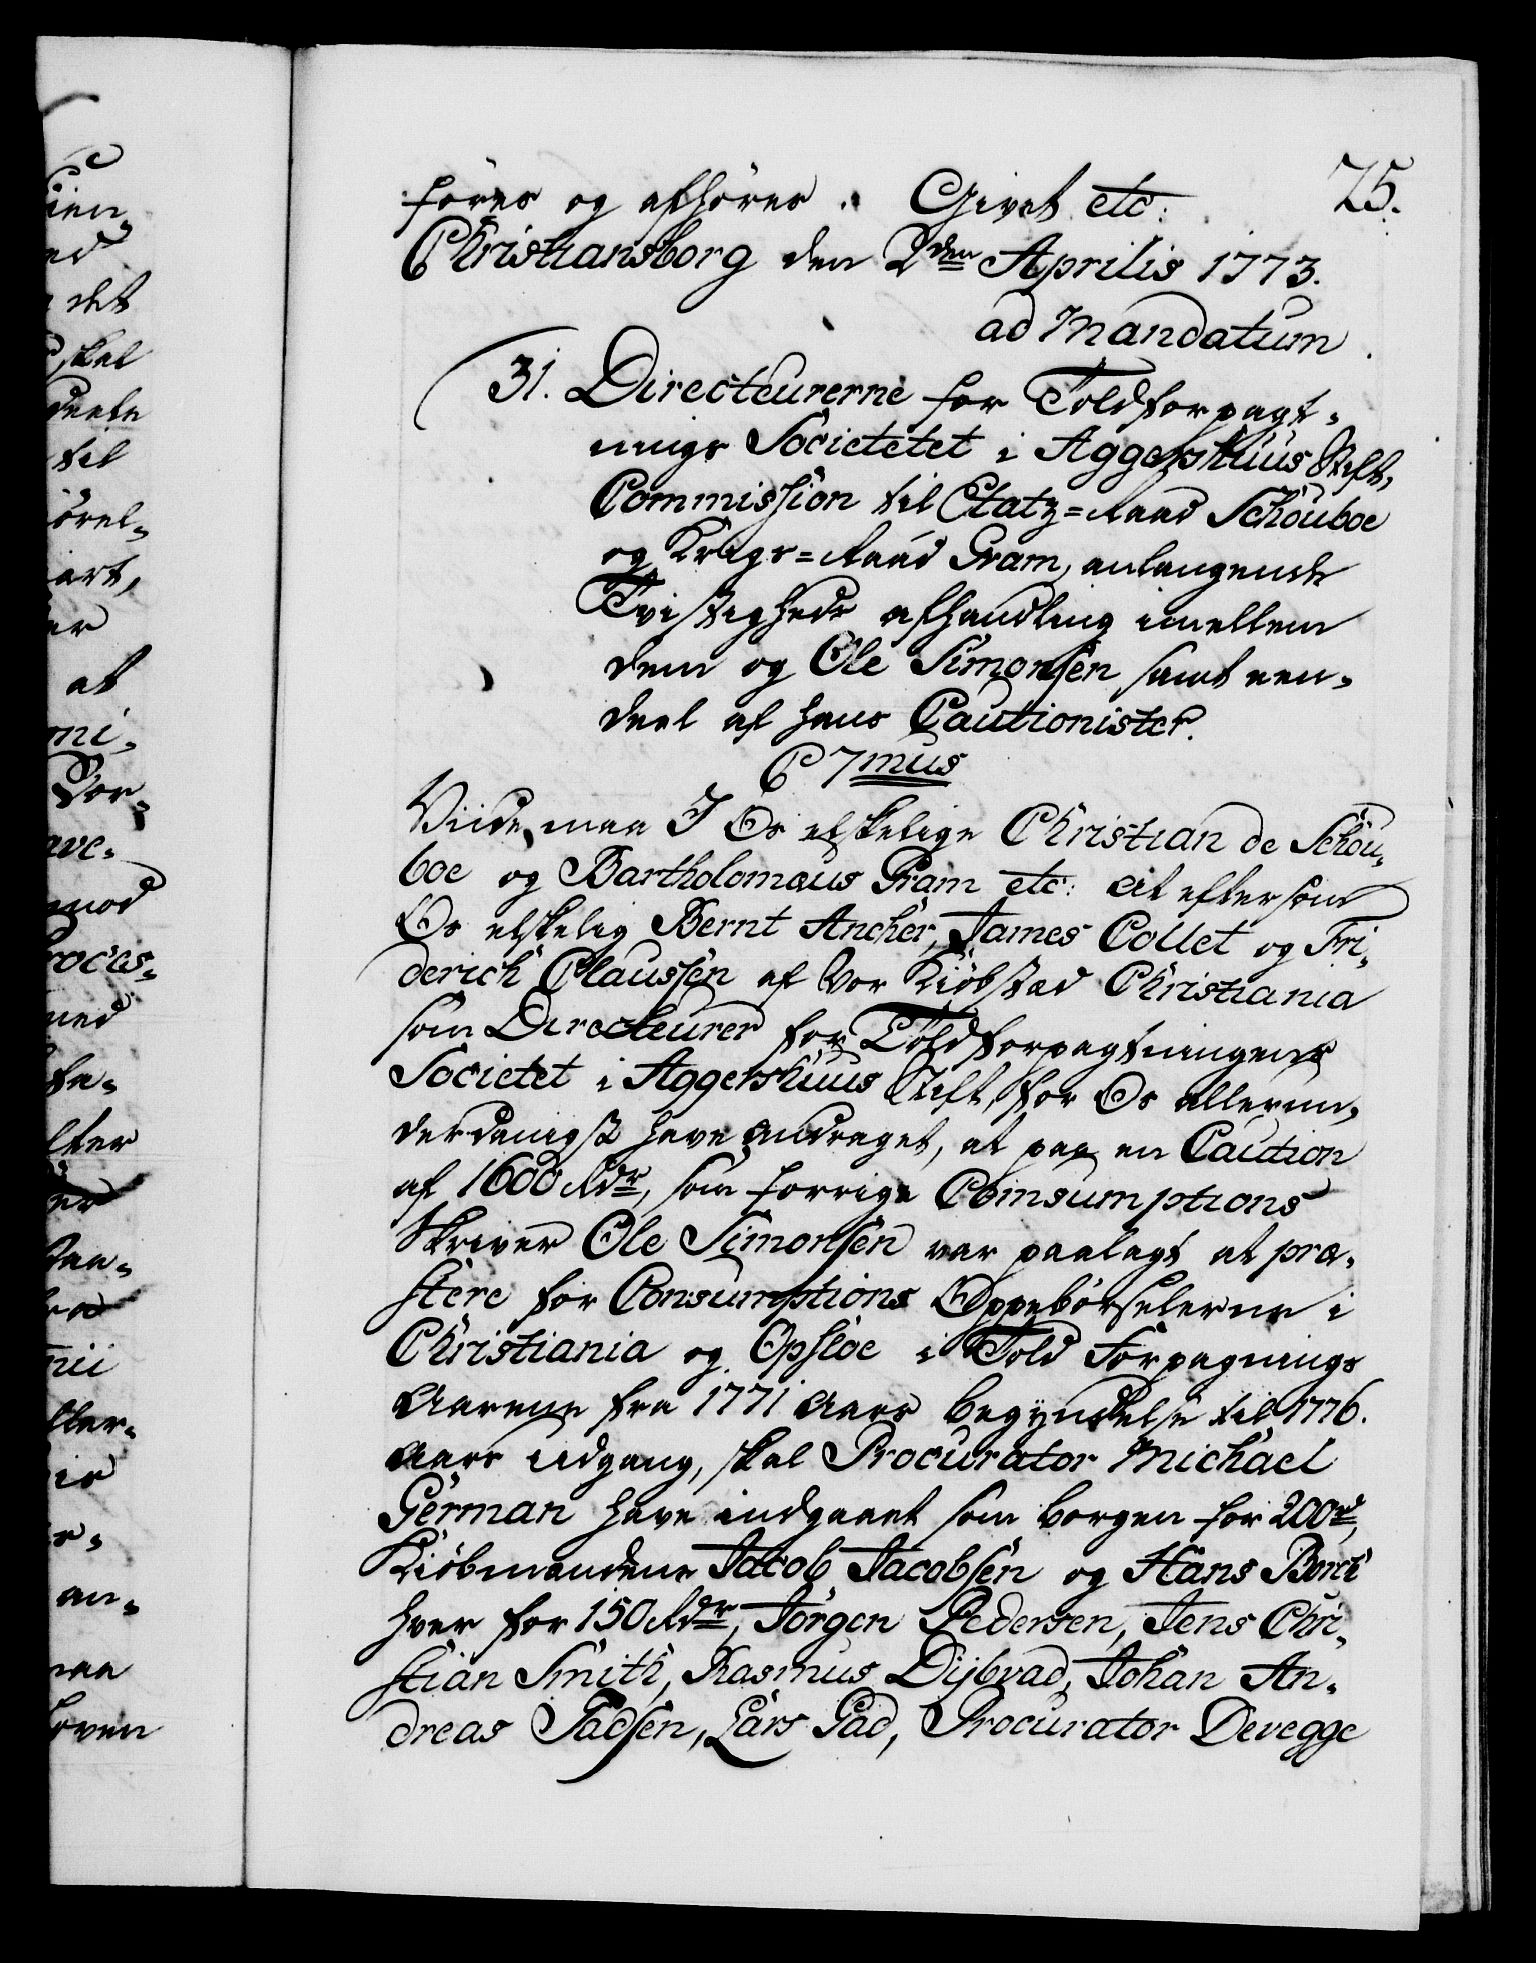 75.
föres og afhöres. Givet etc:
Christiansborg den 2den Aprilis 1773.
ad Mandatum
31. Directeurerne for Toldforpagt-
nings Societetet i Aggershuus Stift,
Commission til Etatz-Raad Schouboe
og Krigs-Raad Gram, anlangende
Tvistigheds afhandling imellem
dem og Ole Simonsen samt een-
deel af hans Cautionister.
C 7mus
Viide maa I Os elskelige Christian de Schou-
boe og Bartholomæus Gram etc: at eftersom
Os elskelig Bernt Ancher, James Collet og Fri-
derich Claussen af Vor Kiöbstæd Christiania
som Directeurer for Toldforpagtningens
Societet i Aggershuus Stift, for Os allerun-
derdanigst have andraget, at paa en Caution
af 1600 Rdr, som forrige Consumptions
Skriver Ole Simonsen var paalagt at præ-
stere for Consumptions Oppebörselerne i
Christiania og Opsloe i Told Forpagnings
Aarene fra 1771 Aars begyndelse til 1776.
Aars udgang, skal Procurator Michael
German have indgaaet som borgen for 200 rd,
Kiöbmændene Jacob Jacobsen og Hans Borch
hver for 150 Rdr, Jörgen Pedersen, Jens Chri-
stian Smith, Rasmus Dijbvad, Johan An-
dreas Tadsen, Lars Gad, Procurator Devegge
det
skal
til
at